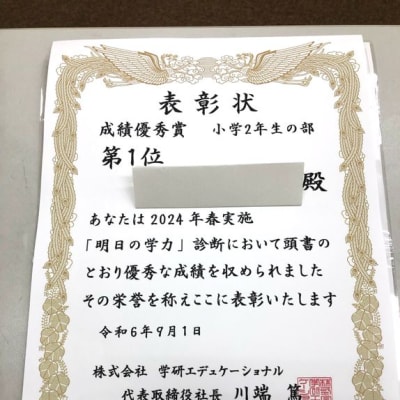 表彰状
成績優秀賞 小学2年生の部
第1位
殿
あなたは2024年春実施
「明日の学力」診断において頭書の
とおり優秀な成績を収められました
その栄誉を称えここに表彰いたします
令和6年9月1日
株式会社 学研エデュケーショナル
代表取締役社長 川端 篤